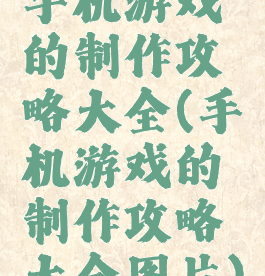 手机游戏
的制作攻
略大全(手
机游戏的
制作攻略
大全图片)